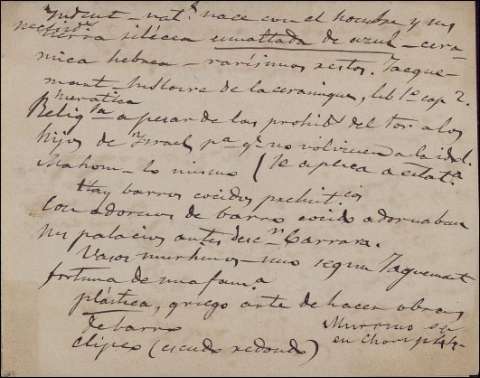 Indust - nat.l nace con el hombre y sus
necesid.s
tierra silícea esmaltada de azul - cera-
mica hebrea - rarísimos restos. Jacque-
mart - histoire de la ceramique, lib 1º cap 2.
hieratica
Relig.sa a pesar de las prohib.s del
hijos de Israel pa. q.e no volviesen a la idol.
Mahom - lo mismo (se aplica a estat.a
Hay barros cocidos
Con adornos de barro cocido adornaban
sus palacios antes Carrara.
Vasos murhinos - uno segun Jaquemart
fortuna de una fam.a
plástica, griego arte de hacer obras
de barro
clipeo (escudo redondo)
Murano
en